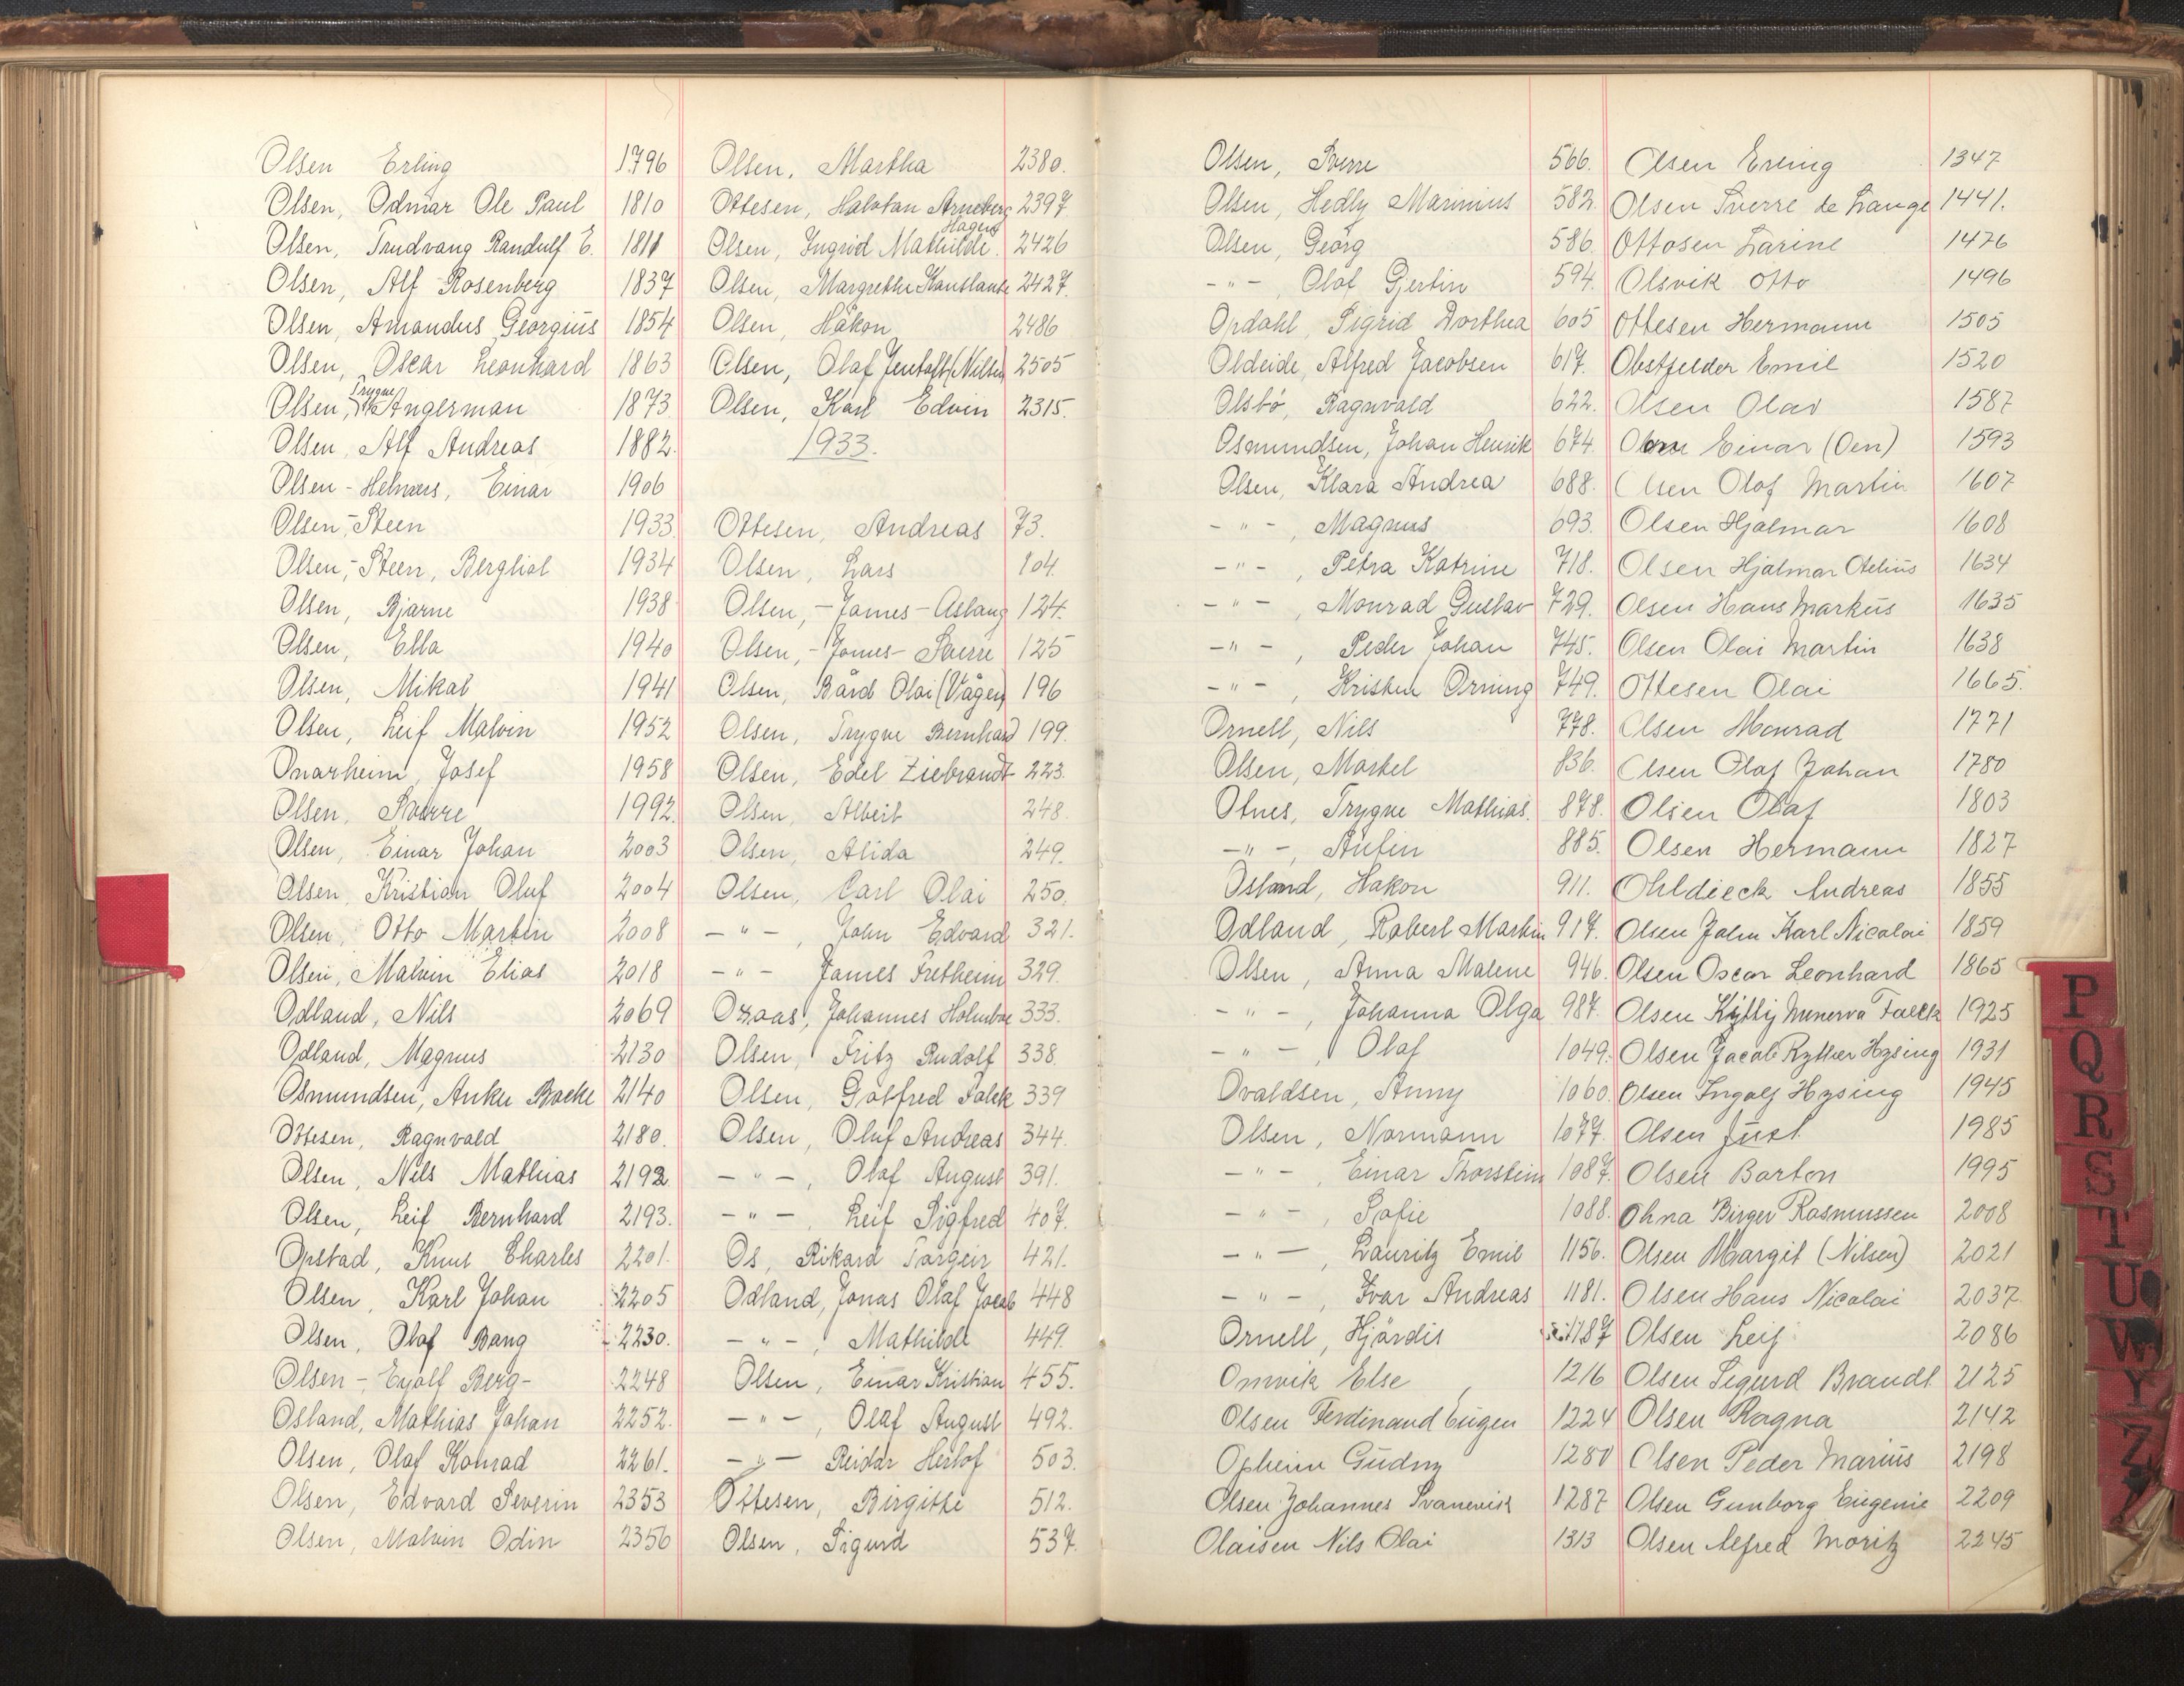 Olsen Erling 1796
Olsen, Odmar Ole Paul 1810
Olsen, Trudvang Randulf E. 1811
Olsen, Alf Rosenberg 1837
Olsen, Amandus Georgius 1854
Olsen, Oscar Leonhard 1863
Olsen, Trygve Angerman 1873
Olsen, Alf Andreas 1882.
Olsen - Helmers, Einar 1906
Olsen, - Steen 1933.
Olsen, - Steen, Bergliot 1934
Olsen, Bjarne 1938
Olsen, Ella 1940
Olsen, Mikal 1941
Olsen, Leif Malvin 1952
Onarheim, Josef 1958
Olsen, Sverre 1992.
Olsen, Einar Johan 2003
Olsen, Kristian Oluf 2004
Olsen, Otto Martin 2008
Olsen, Malvin Elias 2018
Odland, Nils 2069
Odland, Magnus 2130
Osmundsen, Anker Backe 2140
Ottesen, Ragnvald 2180.
Olsen, Nils Mathias 2192
Olsen, Leif Bernhard 2193.
Opstad, Knut Charles 2201.
Olsen, Karl Johan 2205
Olsen, Olaf Bang 2230.
Olsen - Eyolf Berg- 2248
Osland, Mathias Johan 2252.
Olsen, Olaf Konrad 2261.
Olsen, Edvard Severin 2353
Olsen, Malvin Odin 2356
Olsen, Martha 2380.
Ottesen, Halvdan Arneberg 2397
Hagen
Olsen, Ingrid Mathilde. 2426
Olsen, Margrethe 2427.
Olsen, Håkon 2486
Olsen, Olaf Jentoft (Nilsen) 2505
Olsen, Karl Edvin 2315.
1933.
Ottesen, Andreas 73.
Olsen, Lars 104.
Olsen, - James - Aslaug 124.
Olsen, - James - Sverre 125
Olsen, Bård Olai (Vågen) 196
Olsen, Trygve Bernhard 199.
Olsen, Edel Ziebrandt 223.
Olsen, Albert 248.
Olsen, Alida 249.
Olsen, Carl Olai 250.
- " - , John Edvard 321.
- " - James Fretheim 329.
Johannes Holmboe 333.
Olsen, Fritz Rudolf 338.
Olsen, Gotfred Falck 339
Olsen, Oluf Andreas 344.
- " - , Olaf August 391.
- " - , Leif Sigfred 407.
Os, Rikard Torgeir 421.
Odland, Jonas Olaf Jacob 448
- " - , Mathilde 449.
Olsen, Einar Kristian 455.
- " - , Olaf August 492.
- " - Reidar Herlof 503.
Ottesen, Birgitte 512.
Olsen, Sigurd 537.
Olsen, Sverre 566.
Olsen, Hedly Marinius 582
Olsen, Georg 586.
- " - , Olaf Gjertin 594.
Opdahl, Sigrid Dorthea 605
Oldeide, Alfred Jacobsen 617.
Olsbö, Ragnvald 622.
Osmundsen, Johan Henrik 674.
Olsen, Klara Andrea 688.
- " - , Magnus 693.
- " - , Petra Katrine 718.
- " - , Monrad Gustav 729.
- " - , Peder Johan 745.
- " - , Kristen Orning 749.
Ornell, Nils 778.
Olsen, Maskel 836.
Otnes, Trygve Mathias. 878.
- " - , Anfin 885.
Osland, Hakon 911.
Odland, Robert Martin 917.
Olsen, Anna Malene 946.
- " - , Johanna Olga 987.
- " - , Olaf 1049.
Ovaldsen, Anny 1060.
Olsen, Normann 1077.
- " - , Einar Thorstein 1087.
- " - , Sofie 1088.
- " - , Lauritz Emil 1156.
- " - , Ivar Andreas 1181.
Ornell, Hjördis 1187
Omvik Else, 1216
Olsen Ferdinand Eugen 1224
Opheim Gudny 1280
Olsen Johannes Svanevik 1287
Olaisen Nils Olai 1313
Olsen Erling 1347
Olsen Sverre de Lange 1441.
Ottosen Larine 1476
Olsvik Otto 1496
Ottesen Hermann 1505
Obstfelder Emil 1520
Olsen Olav 1587
Einar (Oen) 1593
Olsen Olaf Martin 1607
Olsen Hjalmar 1608
Olsen Hjalmar Otelius 1634
Olsen Hans Markus 1635
Olsen Olai Martin 1638
Ottesen Olai 1665.
Olsen Monrad 1771
Olsen Olaf Johan 1780
Olsen Olaf 1803
Olsen Hermann 1827
Ohldieck Andreas 1855
Olsen John Karl Nicolai 1859
Olsen Oscar Leonhard 1865
Olsen Kitty Minerva Falck 1925
Olsen Jacob Ryther Hysing 1931
Olsen Ingolf Hysing 1945
Olsen Just 1985
Olsen Barton 1995
Ohna Birger Rasmussen 2008
Olsen Margit (Nilsen) 2021
Olsen Hans Nicolai 2037.
Olsen Leif 2086
Olsen Sigurd Brandt 2125
Olsen Ragna 2142
Olsen Peder Marius 2198
Olsen Gunborg Eugenie 2209
Olsen Alfred Moritz 2245
P
Q
R
S
T
U
W
Y
Z